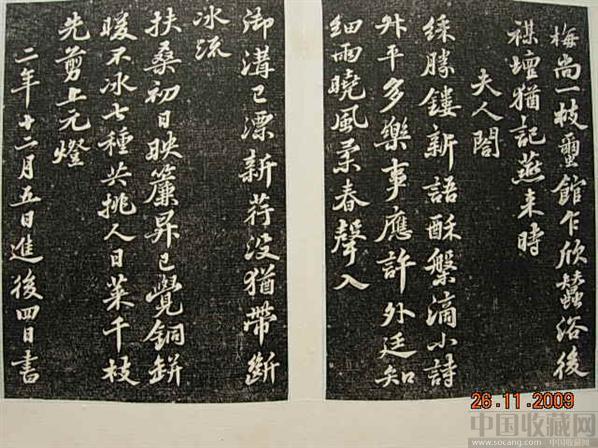 梅尚一枝蠶館乍欣蠶浴後
禖壇猶記燕来時
夫人閤
綵勝鏤新語酥槃滴小詩
外平多樂事應許外廷知
細雨曉風柔春聲入
御溝已漂新荇没猶带斷
冰流
扶桑初日映簾昇已覺銅鉼
暖不冰七種共挑人日菜千枝
先剪上元燈
二年十二月五日進後四日書
26.11.2009
中国收藏网
www.socang.com